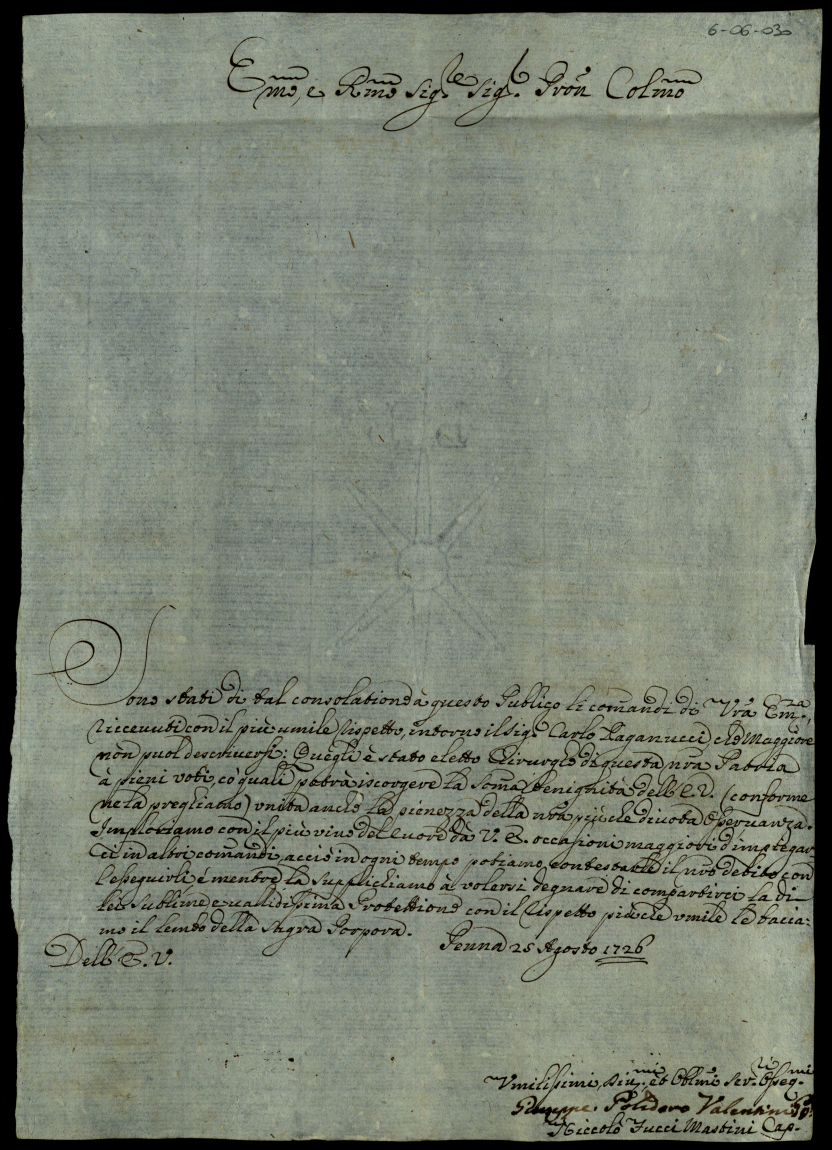 6-06-030
E.mo, e R.mo Sig.re Sig.r Pròn Colmo
Sono stati di tal consolatione à questo Publico li comandi di Vr̃a Em.za,
riccevuti con il più umile rispetto, intorno il Sig.r Carlo Paganucci, che Maggiore
non puol descriversi: Quegli è stato eletto Chirurgho di questa nr̃a Patria
à pieni voti, co quali potrà iscorgere la som̃a benignità dell'E.V. (conforme
ne la preghiamo) unita anche la pienezza della nr̃a più che divota osservanza.
Imploriamo con il più vivo del cuore dà V.E. occasioni maggiori d'impiegar
ci in altri comandi, acciò in ogni tempo potiamo contestarle il nr̃o debito con
l'esequirli, e mentre la supplichiamo à volersi degnare di compartirci la di
lei sublime, e validissima Protettione con il rispetto più che umile le bacia:
mo il lembo della Sagra Porpora.
Penna 25 Agosto 1726
Dell'E.V.
Umilissimi, et Obl.mi Ser.ri Osseq.mi
Giuseppe Polidoro Valentini
Niccolò Fucci Mastini Cap.